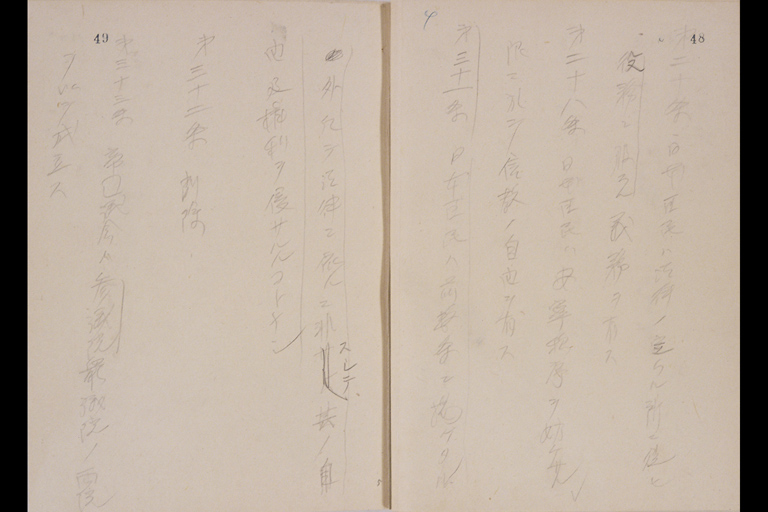 48
第二十条 日本臣民ハ法律ノ定ムル所ニ従ヒ
役務ニ服スル義務ヲ有ス
第二十八条 日本臣民ハ安寧秩序ヲ妨ケサル
限ニ於テ信教ノ自由ヲ有ス
第三十一条 日本臣民ハ前数条ニ掲ケタル
49
外凡テ法律ニ依ルニ非スシテ其ノ自
由及権利ヲ侵サルルコトナシ
第三十二条 削除
第三十三条 帝国議会ハ参議院衆議院ノ両院
ヲ以テ成立ス